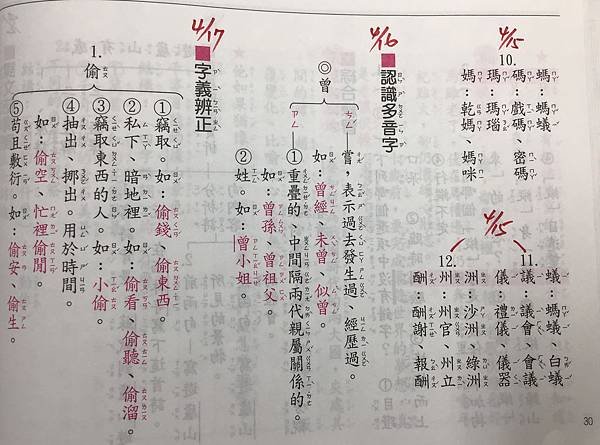 4/15
10.
螞：螞蟻
碼：戲碼、密碼
瑪：瑪瑙
媽：乾媽、媽咪
4/15
11.
蟻：螞蟻、白蟻
議：議會、會議
儀：禮儀、儀器
12.
洲：沙洲、綠洲
州：州官、州立
酬：酬謝、報酬
4/16
■認識多音字
◎曾
ㄘㄥˊ 嘗，表示過去發生過、經歷過。
如：曾經、未曾、似曾。
ㄗㄥ ①重疊的、中間隔兩代親屬關係的。
如：曾孫、曾祖父。
②姓。如：曾小姐。
4/17
■字義辨正
1.偷
①竊取。如：偷錢、偷東西。
②私下、暗地裡。如：偷看、偷聽、偷溜。
③竊取東西的人。如：小偷。
④抽出、挪出。用於時間。
如：偷空、忙裡偷閒。
⑤苟且敷衍。如：偷安、偷生。
30